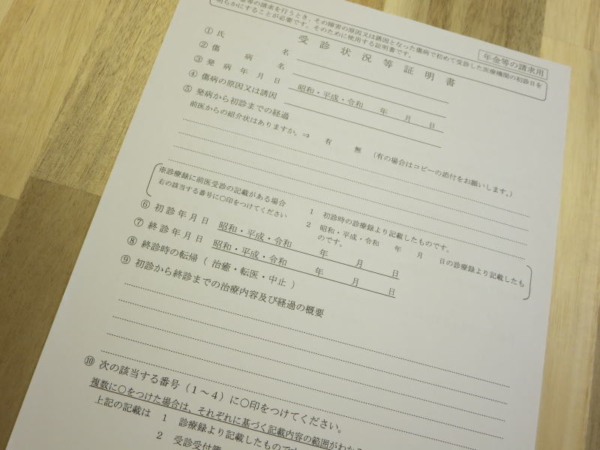 年金等の請求用
金等の請求を行うとき、その障害の原因又は誘因となった傷病で初めて受診した医療機関の初診日を
明らかにすることが必要です。そのために使用する証明書です。
受診状況等証明書
① 氏 名
② 傷 病 名
③ 発 病 年 月 日 昭和・平成・令和 年 月 日
④ 傷病の原因又は誘因
⑤ 発病から初診までの経過
前医からの紹介状はありますか。⇒ 有 無 (有の場合はコピーの添付をお願いします。)
※診療録に前医受診の記載がある場合 1 初診時の診療録より記載したものです。
右の該当する番号に○印をつけてください 2 昭和・平成・令和 年 月 日の診療録より記載したも
のです。
⑥ 初 診 年 月 日 昭和・平成・令和 年 月 日
⑦ 終 診 年 月 日 昭和・平成・令和 年 月 日
⑧ 終診時の転帰 (治癒・転医・中止)
⑨ 初診から終診までの治療内容及び経過の概要
⑩ 次の該当する番号(1~4)に○印をつけてください。
複数に○をつけた場合は、それぞれに基づく記載内容の範囲がわかる
上記の記載は 1 診療録より記載したもので
2 受診受付簿